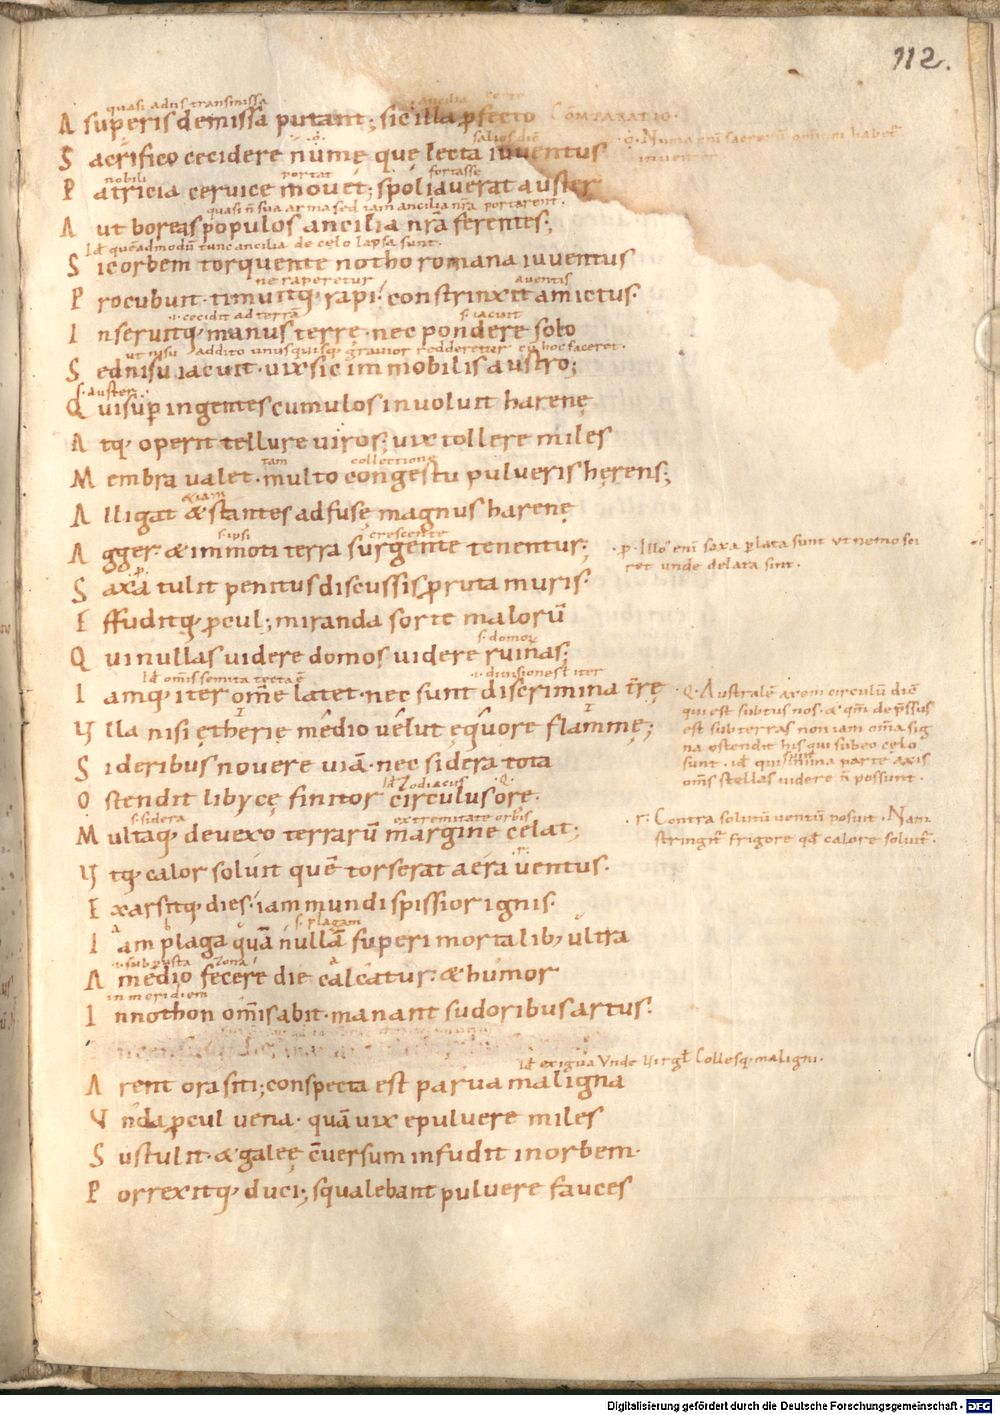 112.
quasi adiis transmissa
A superis demissa putant; sic illa ꝓfecto COMPARATIO.
S acrifico cecidere numę quę lecta iuuentus
nobili portat fortasse
P atricia ceruice mouet; spoliauerat auster
quasi n̄ sua arma sed iam ancilia nr̄a portarent.
A ut boreas populos ancilia nr̄a ferentes;
Id quēadmodū tunc ancilia de celo lapsa sunt.
S ic orbem torquente notho romana iuuentus
ne raperetur auentis
P rocubuit. timuitq; rapi. constrinxit amictus.
.i. cecidit ad terrā s. iacuit
I nseruitq; manus terrę. nec pondere solo
ut nisu addito unusquisq; grauior redderetur cū hoc faceret.
S ed nisu iacuit. uix sic immobilis austro;
s. auster
Q ui suꝑ ingentes cumulos inuoluit harenę
A tq; operit tellure uiros; uix tollere miles
tam collectione
M embra ualet. multo congestu pulueris hęrens;
etiam
A lligat & stantes adfusę magnus harenę
s. ipsi crescente
A gger. & immoti terra surgente tenentur;
.p. Illo enī saxa ꝑlata sunt ut nemo sci
ret unde delata sint.
.p.
S axa tulit penitus discussis ꝓruta muris.
E ffuditq; ꝓcul; miranda sorte malorū
s. domorū
Q ui nullas uidere domos uidere ruinas;
Id om̄is semita tecta ē .i. diuisiones t̄ iter
I amq; iter om̄e latet. nec sunt discrimina t̄rę
.q. Australē axem circulū diē
qui est subtus nos. & qm̄ dep̄ssus
est sub terras non iam om̄ia sig
na ostendit his qui sub eo celo
sunt. id qui sub illa parte axis
om̄s stellas uidere n̄ possunt.
V lla nisi ętherię medio uelut ęquore flammę;
S ideribus nouere uiā. nec sidera tota
id Zodiacus .q.
O stendit libycę finitor circulus orę.
s. sidera extremitate orbis
M ultaq; deuexo terrarū margine celat;
.r. Contra solitū uentū posuit. Nam
stringit̄ frigore qd̄ calore soluit̄.
.r.
V tq; calor soluit quē torserat aera uentus.
E xarsitq; dies. iam mundi spissior ignis.
s. plagam
I am plaga quā nullā superi mortalib; ultra
.i. subposita zona
A medio fecere die calcatur. & humor
in meridiem
I n nothon om̄is abit. manant sudoribus artus.
id exigua Vnde Uirgl̄ Collesq; maligni.
A rent ora siti; conspecta est parua maligna
V nda ꝓcul uena. quā uix e puluere miles
S ustulit. & galeę c̄uersum infudit in orbem.
P orrexitq; duci; squalebant puluere fauces
Digitalisierung gefördert durch die Deutsche Forschungsgemeinschaft - DFG